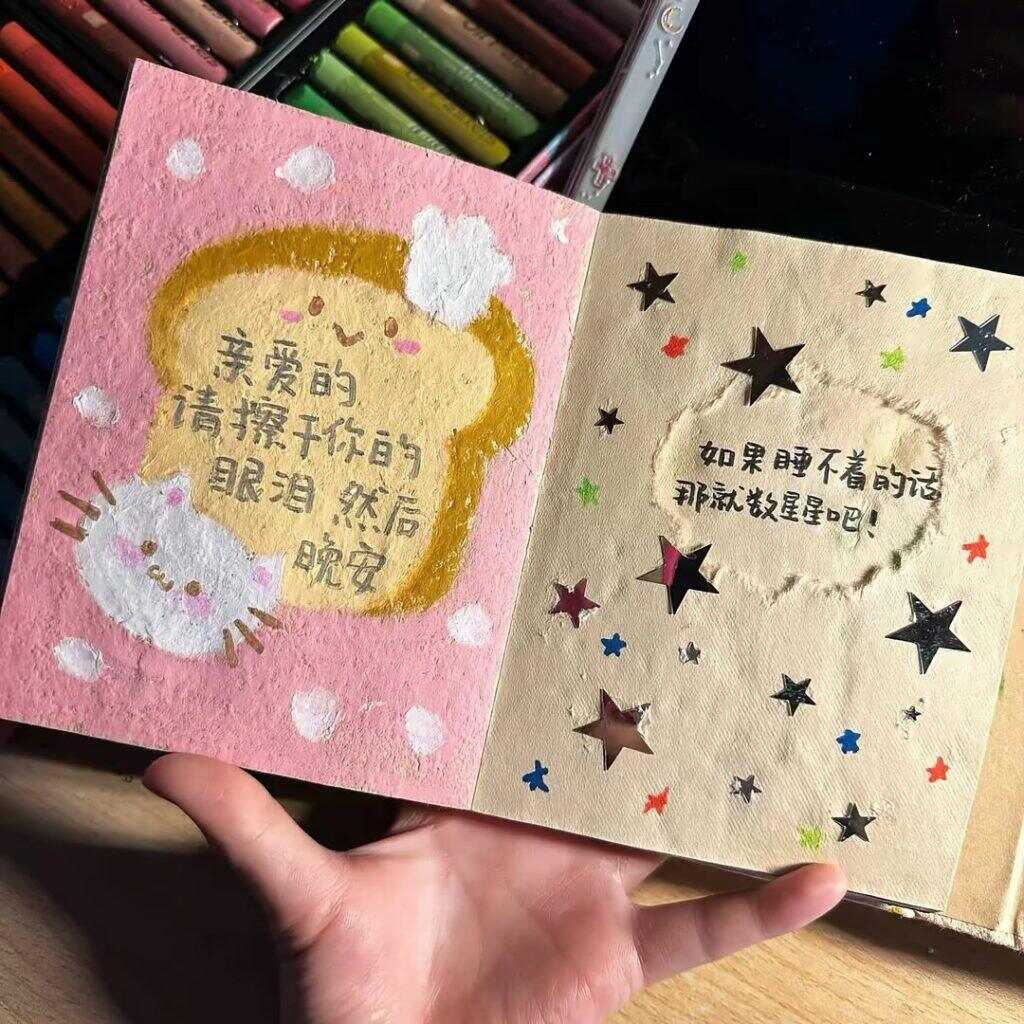 亲爱的
请擦干你的
眼泪 然后
晚安
如果睡不着的话
那就数星星吧!